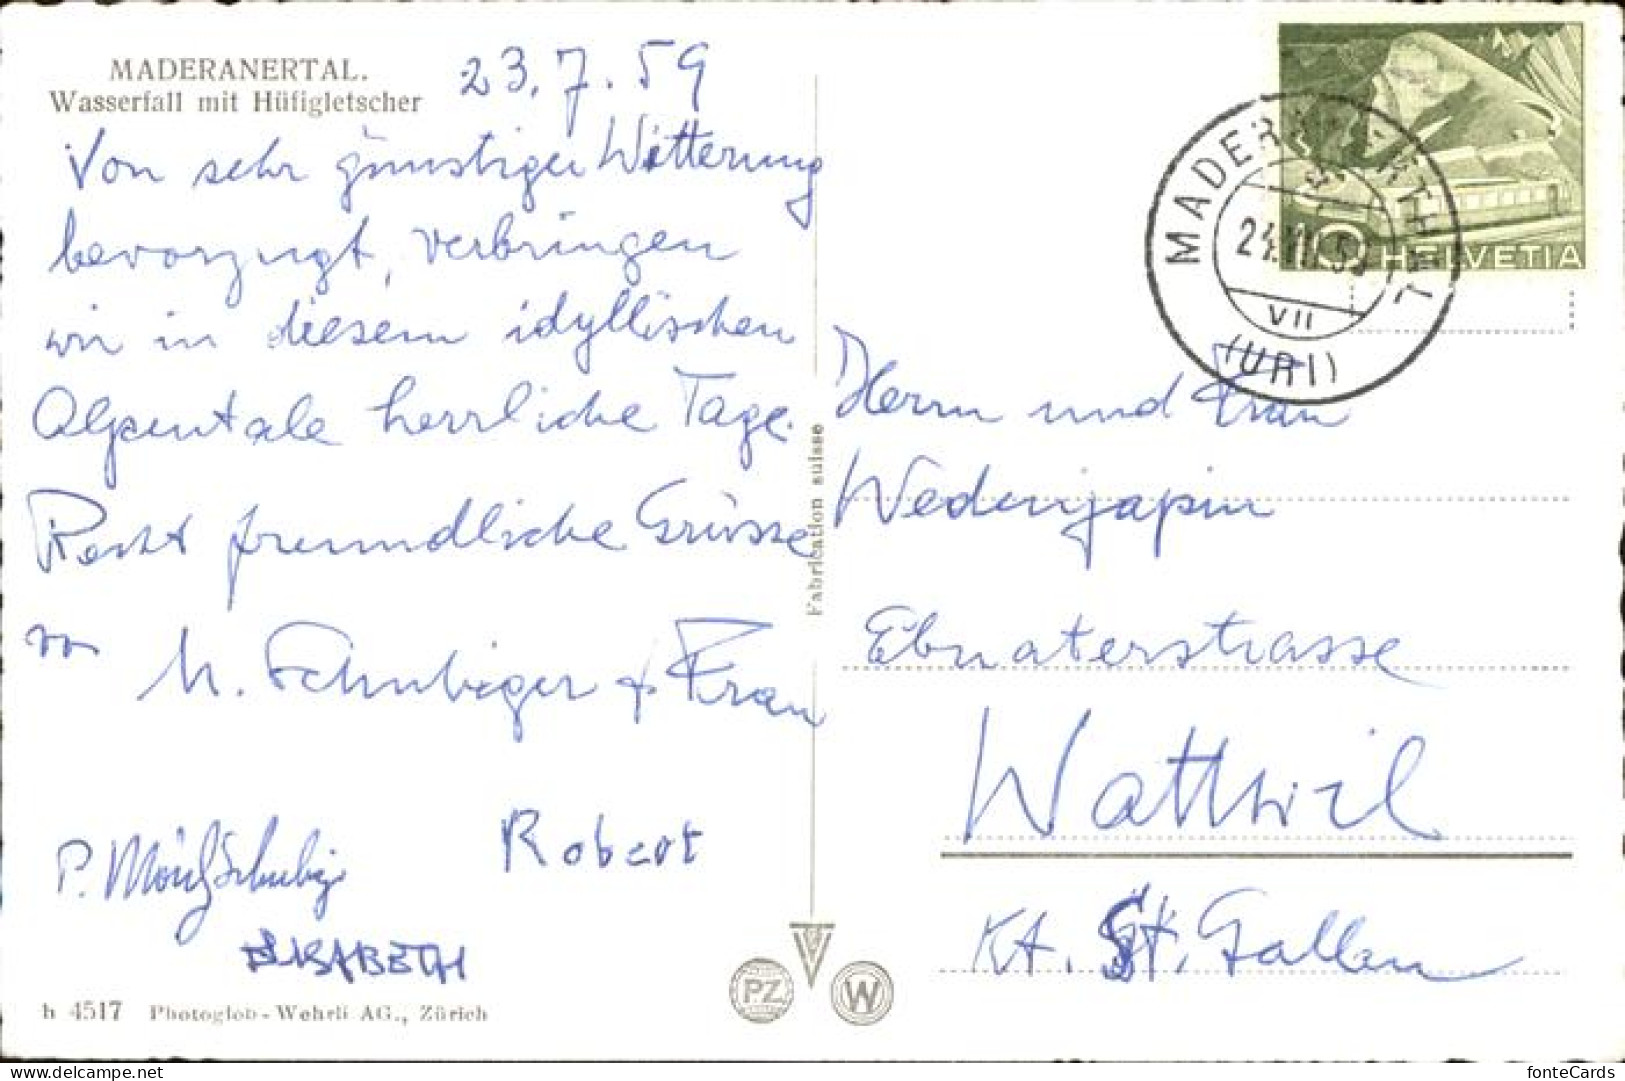 MADERANERTAL.
Wasserfall mit Hüfigletscher
23.7.59
Von sehr günstiger Witterung
bevorzugt, verbringen
wir in diesem idyllischen
Alpentale herrliche Tage.
Recht freundliche Grüsse
von M. Schubiger + Frau
Robert
P. Schubiger
ELISABETH
h 4517 Photoglob-Wehrli AG., Zürich
Fabrication suisse
PZ W
HELVETIA
10
VII
(URI)
Herrn und Frau
Ebnaterstrasse
Wattwil
Kt. St. Gallen
fontetown.net
fonteCards